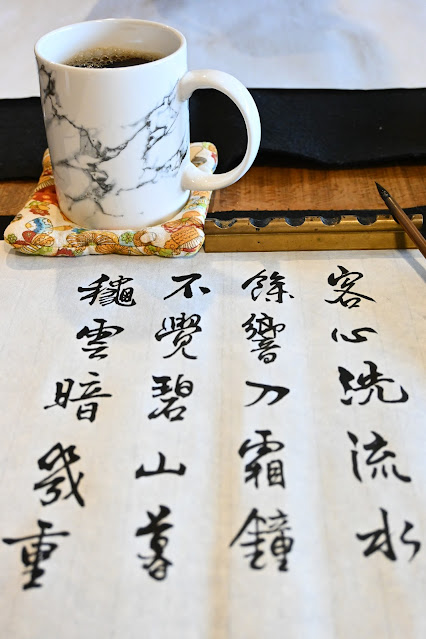 客心洗流水
餘響入霜鐘
不覺碧山暮
龝雲暗幾重